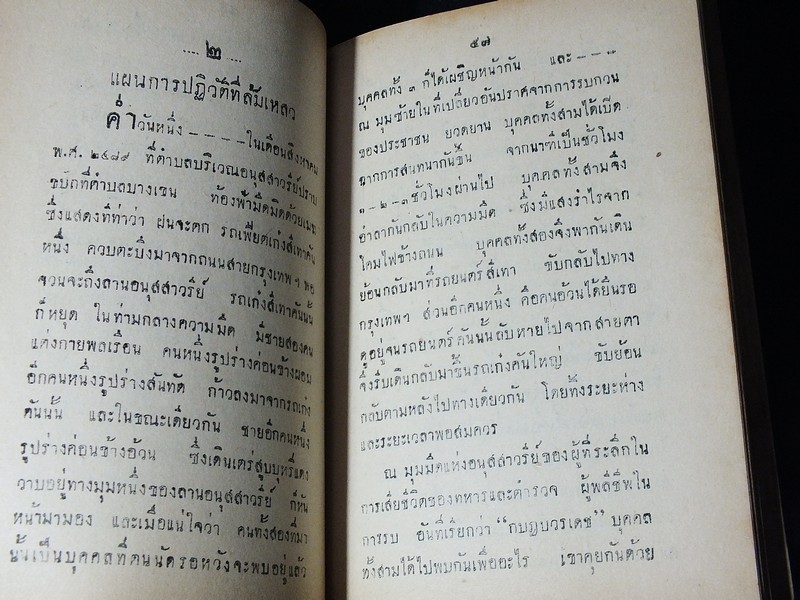 .... ๒ ....
แผนการปฏิวัติที่ล้มเหลว
ค่ำวันหนึ่ง ----ในเดือนสิงหาคม
พ.ศ. ๒๔๘๙ ที่ตำบลบริเวณอนุสสาวรีย์ปราบ
ขบถที่ตำบลบางเขน ท้องฟ้ามืดมิดด้วยเมฆ
ซึ่งแสดงทีท่าว่า ฝนจะตก รถเฟียตเก๋งสีเทาคัน
หนึ่ง ควบตะบึงมาจากถนนสายกรุงเทพฯ พอ
จวนจะถึงลานอนุสสาวรีย์ รถเก๋งสีเทาคันนั้น
ก็หยุด ในท่ามกลางความมืด มีชายสองคน
แต่งกายพลเรือน คนหนึ่งรูปร่างค่อนข้างผอม
อีกคนหนึ่งรูปร่างสันทัด ก้าวลงมาจากรถเก๋ง
คันนั้น และในขณะเดียวกัน ชายอีกคนหนึ่ง
รูปร่างค่อนข้างอ้วน ซึ่งเดินเตร่สูบบุหรี่แดง
วาบอยู่ทางมุมหนึ่งของลานอนุสสาวรีย์ ก็หัน
หน้ามามอง และเมื่อแน่ใจว่า คนทั้งสองที่มา
นั้นเป็นบุคคลที่ตนนัดรอหวังจะพบอยู่แล้ว
๕๗
บุคคลทั้ง ๓ ก็ได้เผชิญหน้ากัน และ ----
ณ มุมซ้ายในที่เปลี่ยวอันปราศจากการรบกวน
ของประชาชน ยวดยาน บุคคลทั้งสามได้เปิด
ฉากการสนทนากันขึ้น จากนาฑีเป็นชั่วโมง
๑-๒-๓ ชั่วโมงผ่านไป บุคคลทั้งสามจึง
อำลากันกลับในความมืด ซึ่งมีแสงรำไรจาก
โคมไฟข้างถนน บุคคลทั้งสองจึงพากันเดิน
ย้อนกลับมาที่รถยนตร์สีเทา ขับกลับไปทาง
กรุงเทพฯ ส่วนอีกคนหนึ่ง คือคนอ้วนได้ยืนรอ
ดูอยู่จนรถยนตร์คันนั้นลับหายไปจากสายตา
จึงรีบเดินกลับมาขึ้นรถเก๋งคันใหญ่ ขับย้อน
กลับตามหลังไปทางเดียวกัน โดยทิ้งระยะห่าง
และระยะเวลาพอสมควร
ณ มุมมืดแห่งอนุสสาวรีย์ของผู้ที่ระลึกใน
การเสียชีวิตของทหารและตำรวจ ผู้พลีชีพใน
การรบ อันที่เรียกว่า "กบฏบวรเดช" บุคคล
ทั้งสามได้ไปพบกันเพื่ออะไร เขาคุยกันด้วย